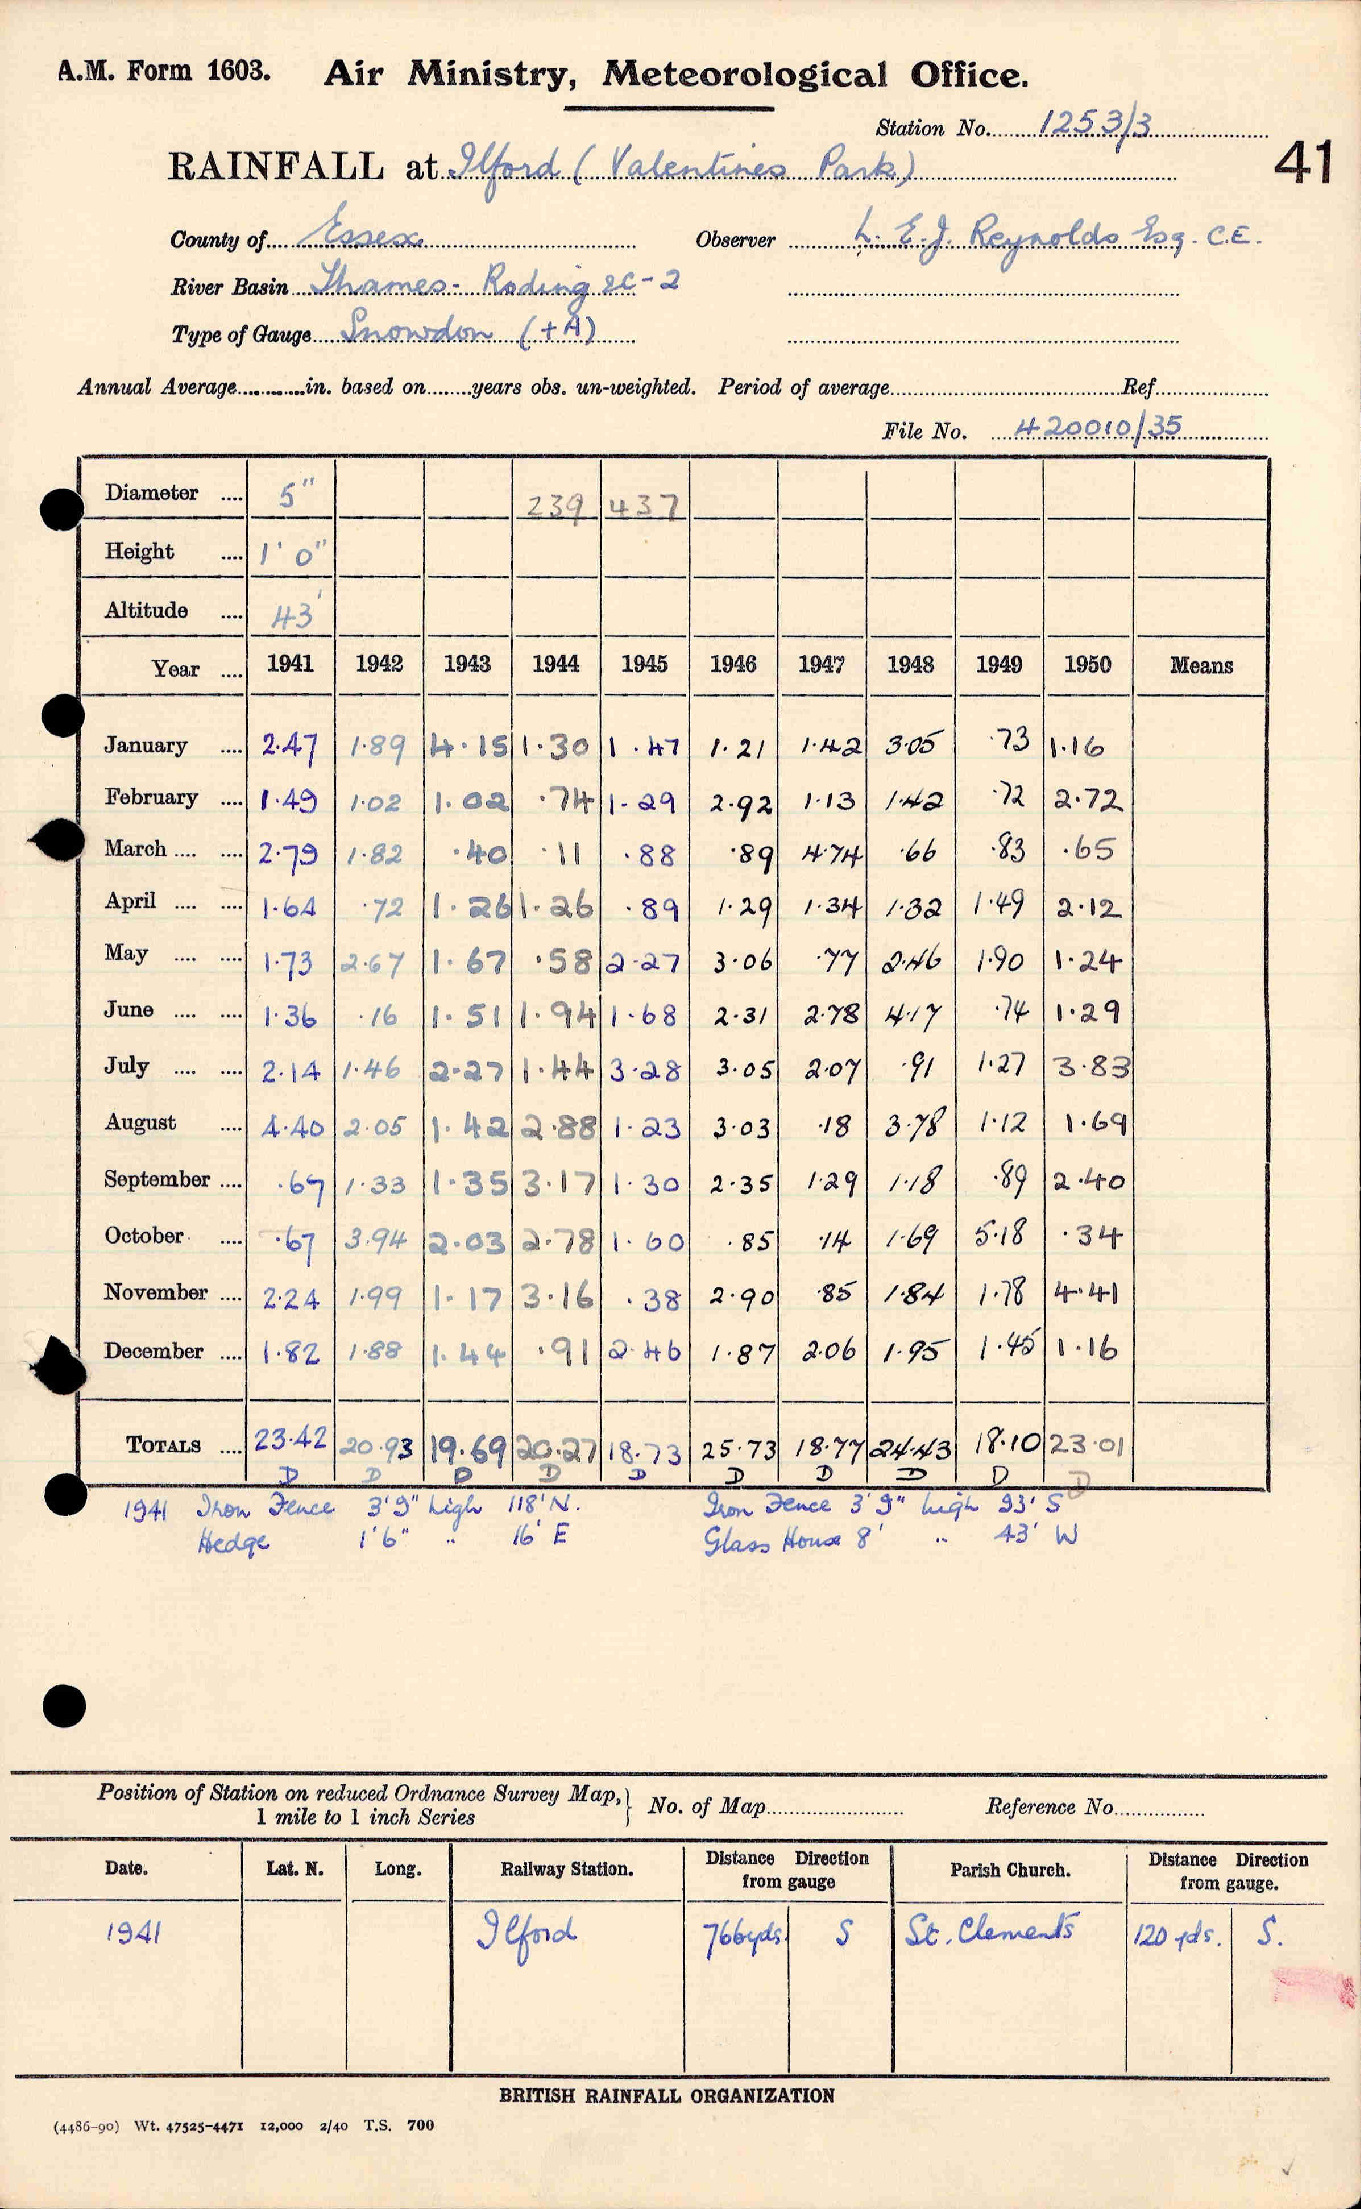 A.M. Form 1603. Air Ministry, Meteorological Office.
Station No. 1253/3
41
RAINFALL at Ilford (Valentines Park)
County of Essex Observer L. E. J. Reynolds Esq. C.E.
River Basin Thames - Roding 2C-2
Type of Gauge Snowdon (+A)
Annual Average in. based on years obs. un-weighted. Period of average Ref.
File No. 420010/35
Diameter .... 5" 239 437
Height .... 1' 0"
Altitude .... 43'
Year .... 1941 1942 1943 1944 1945 1946 1947 1948 1949 1950 Means
January .... 2.47 1.89 4.15 1.30 1.47 1.21 1.42 3.05 .73 1.16
February .... 1.49 1.02 1.02 .74 1.29 2.92 1.13 1.42 .72 2.72
March .... .... 2.79 1.82 .40 .11 .88 .89 4.74 .66 .83 .65
April .... .... 1.64 .72 1.26 1.26 .89 1.29 1.34 1.32 1.49 2.12
May .... .... 1.73 2.67 1.67 .58 2.27 3.06 .77 2.46 1.90 1.24
June .... .... 1.36 .16 1.51 1.94 1.68 2.31 2.78 4.17 .74 1.29
July .... .... 2.14 1.46 2.27 1.44 3.28 3.05 2.07 .91 1.27 3.83
August .... 4.40 2.05 1.42 2.88 1.23 3.03 .18 3.78 1.12 1.69
September .... .67 1.33 1.35 3.17 1.30 2.35 1.29 1.18 .89 2.40
October .... .67 3.94 2.03 2.78 1.60 .85 .14 1.69 5.18 .34
November .... 2.24 1.99 1.17 3.16 .38 2.90 .85 1.84 1.78 4.41
December .... 1.82 1.88 1.44 .91 2.46 1.87 2.06 1.95 1.45 1.16
TOTALS .... 23.42 20.93 19.69 20.27 18.73 25.73 18.77 24.43 18.10 23.01
D D D D D D D D D D
1941 Iron Fence 3'9" high 118' N. Iron Fence 3'9" high 93' S
Hedge 1'6" " 16' E Glass House 8' " 43' W
Position of Station on reduced Ordnance Survey Map,} No. of Map Reference No.
1 mile to 1 inch Series
Date. Lat. N. Long. Railway Station. Distance Direction from gauge Parish Church. Distance Direction from gauge.
1941 Ilford 766yds. S St. Clements 120 yds. S.
BRITISH RAINFALL ORGANIZATION
(4486-90) Wt. 47525-4471 12,000 2/40 T.S. 700